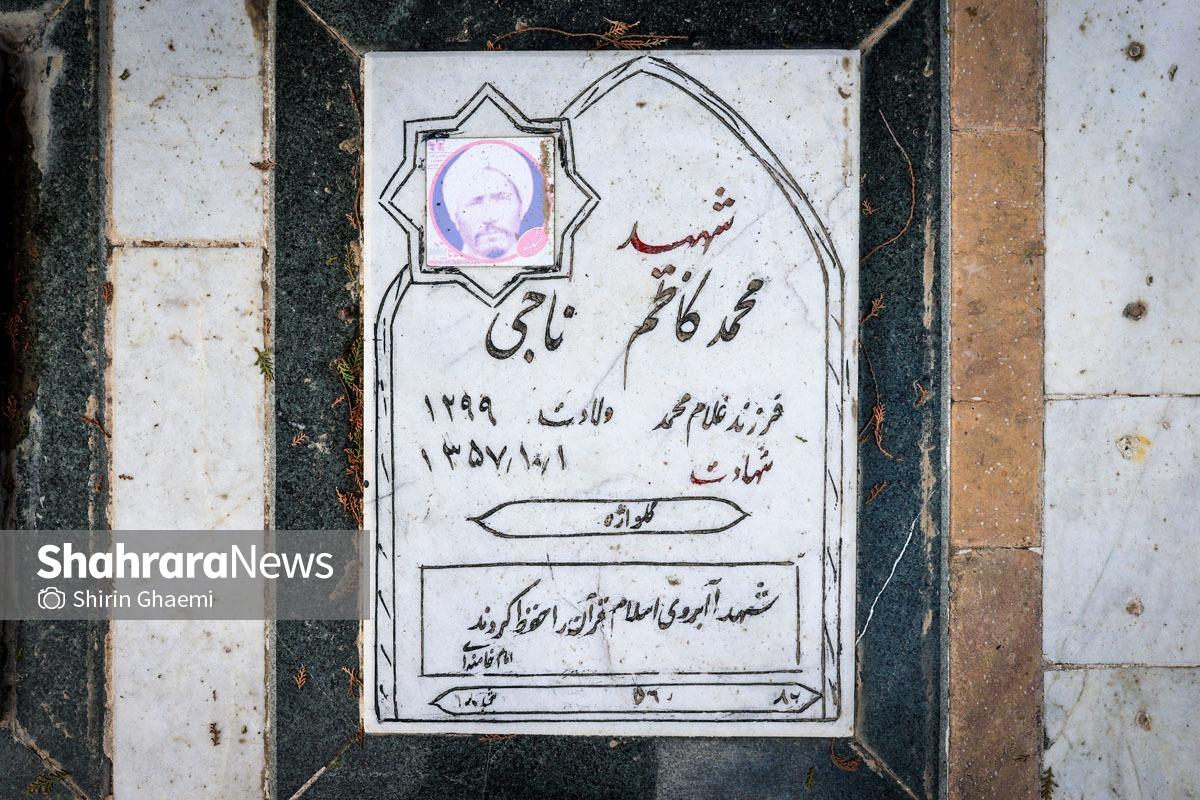 شهید
محمد کاظم ناجی
فرزند غلام محمد ولادت ۱۲۹۹
شهادت ۱۳۵۷/۱۰/۱
گلواژه
شهدا آبروی اسلام قرآن را حفظ کردند
امام خامنه‌ای
۵۶
ShahraraNews
Shirin Ghaemi